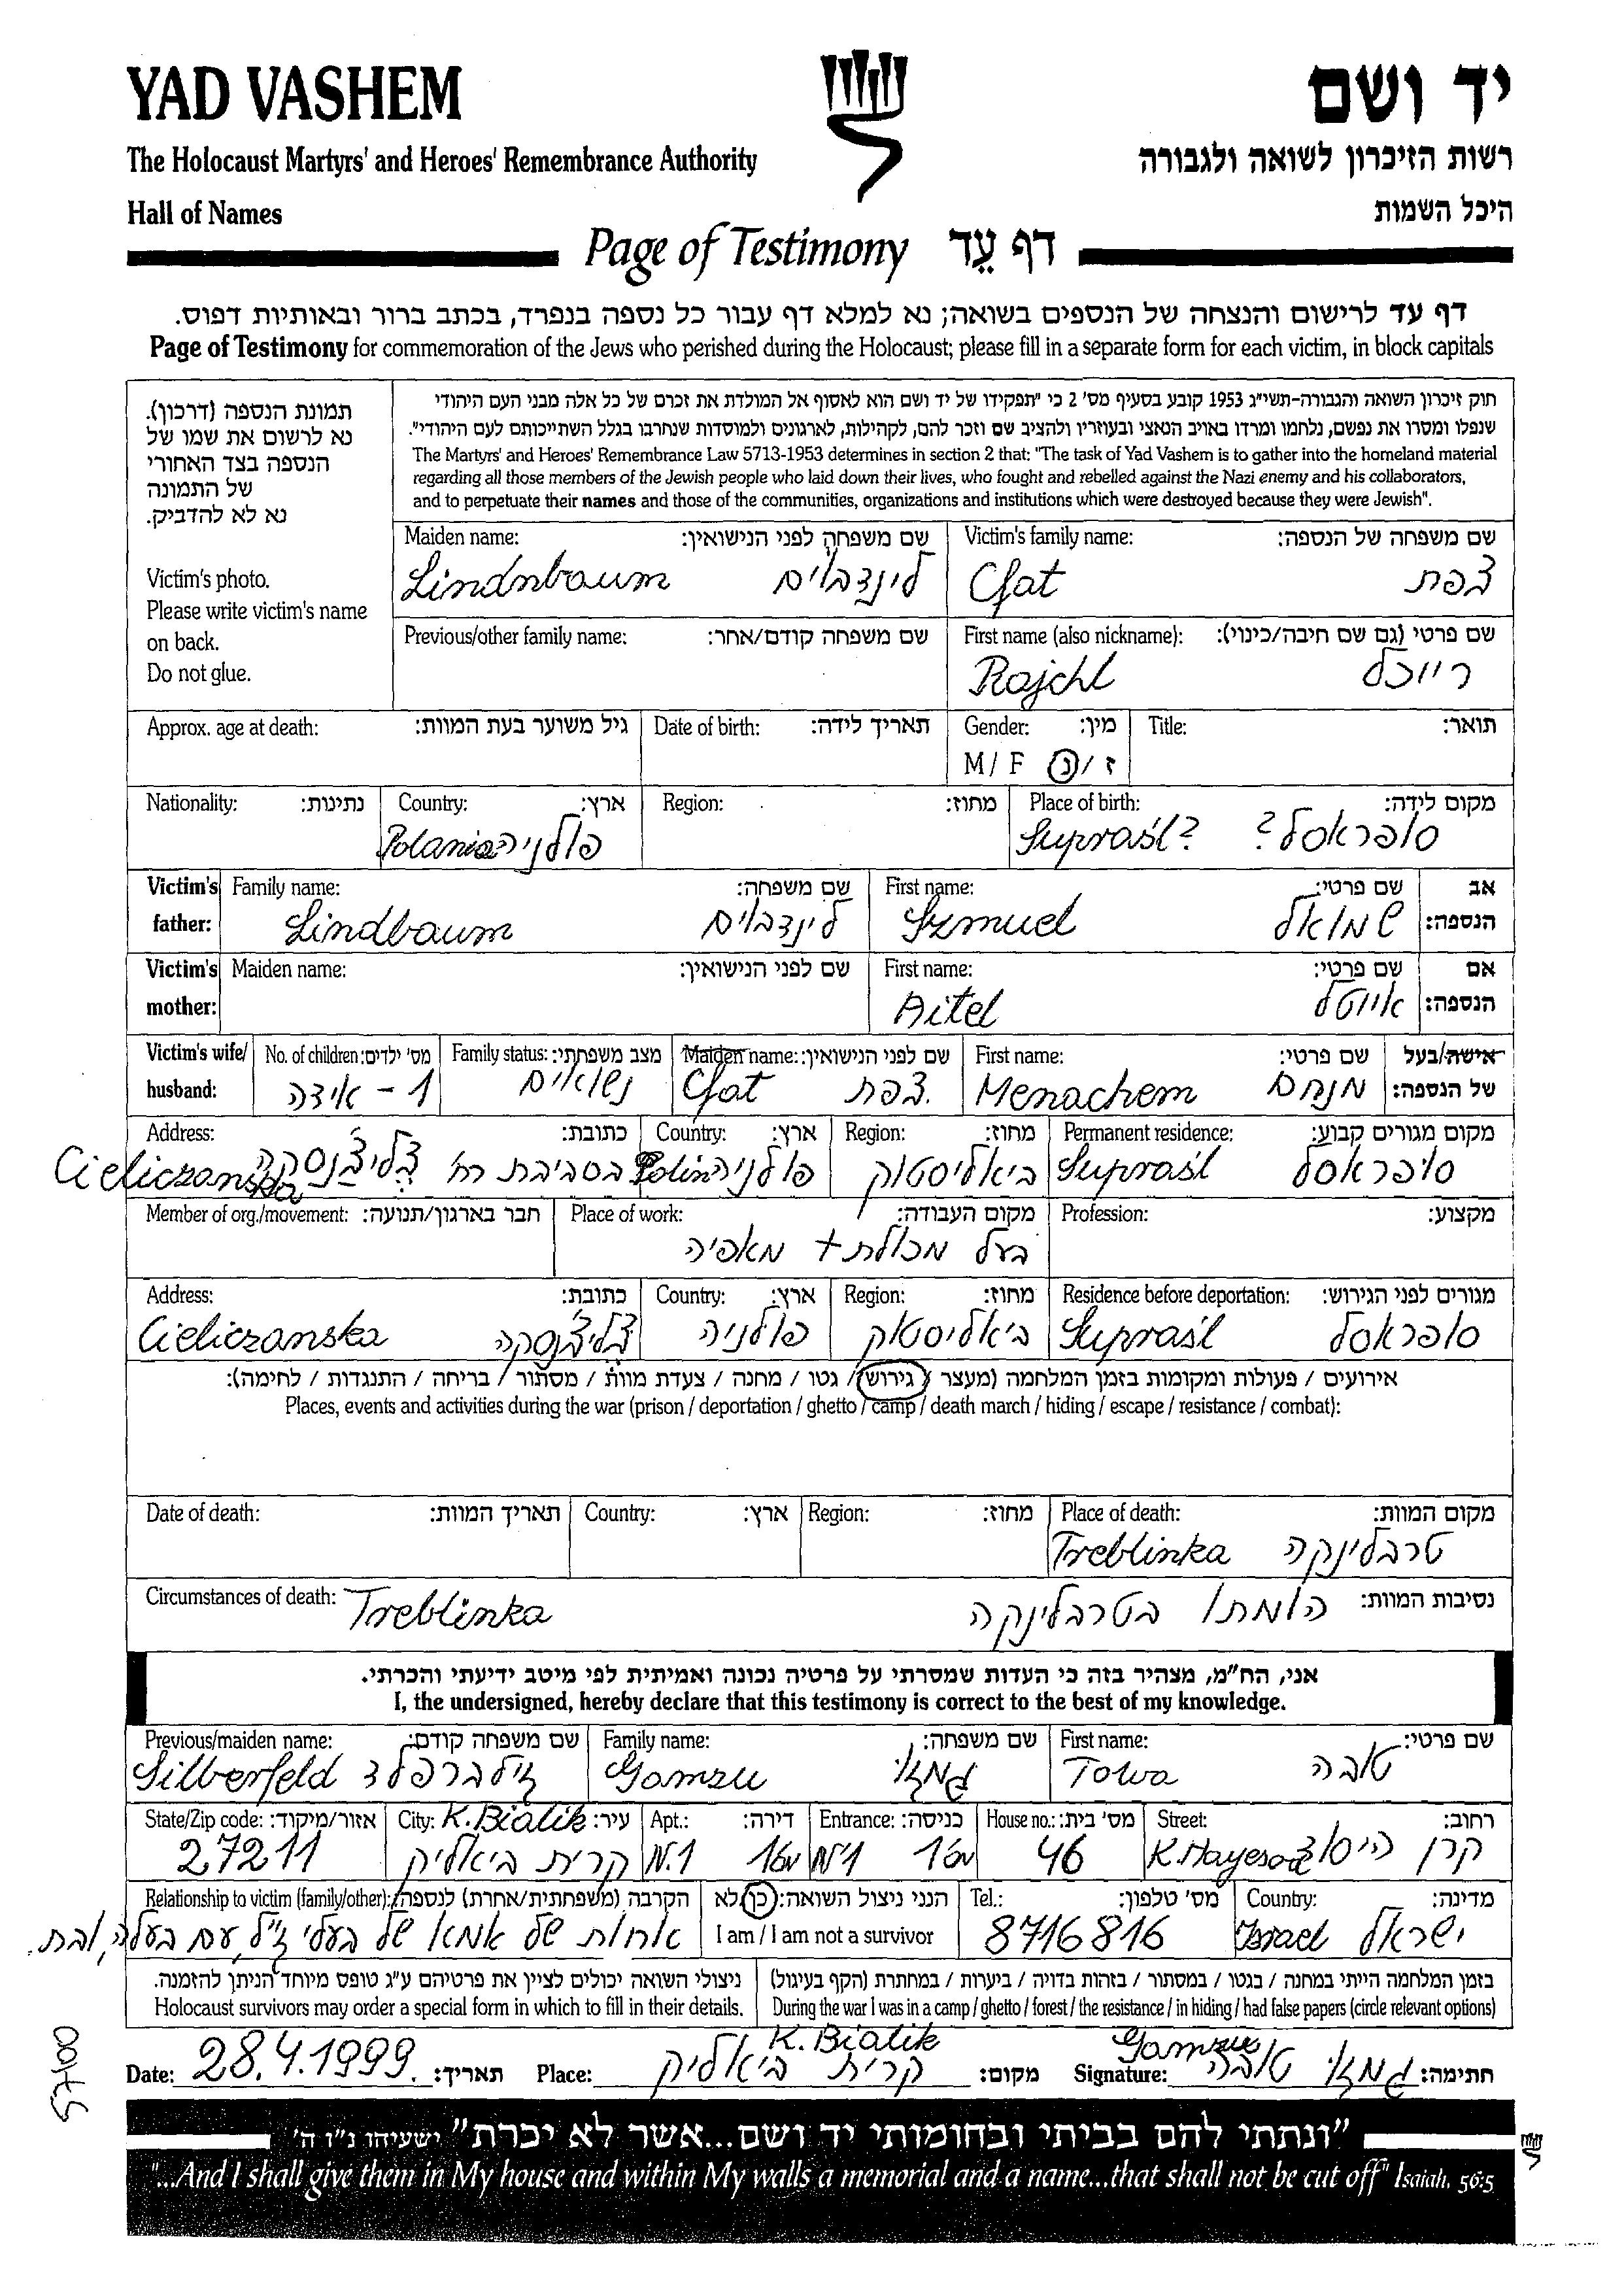 YAD VASHEM
יד ושם
The Holocaust Martyrs' and Heroes' Remembrance Authority
רשות הזיכרון לשואה ולגבורה
Hall of Names
היכל השמות
Page of Testimony דף עֵד
דף עד לרישום והנצחה של הנספים בשואה; נא למלא דף עבור כל נספה בנפרד, בכתב ברור ובאותיות דפוס.
Page of Testimony for commemoration of the Jews who perished during the Holocaust; please fill in a separate form for each victim, in block capitals
תמונת הנספה (דרכון).
נא לרשום את שמו של
הנספה בצד האחורי
של התמונה
נא לא להדביק.
Victim's photo.
Please write victim's name
on back.
Do not glue.
חוק זיכרון השואה והגבורה-תשי"ג 1953 קובע בסעיף מס' 2 כי "תפקידו של יד ושם הוא לאסוף אל המולדת את זכרם של כל אלה מבני העם היהודי
שנפלו ומסרו את נפשם, נלחמו ומרדו באויב הנאצי ובעוזריו ולהציב שם וזכר להם, לקהילות, לארגונים ולמוסדות שנחרבו בגלל השתייכותם לעם היהודי".
The Martyrs' and Heroes' Remembrance Law 5713-1953 determines in section 2 that: "The task of Yad Vashem is to gather into the homeland material
regarding all those members of the Jewish people who laid down their lives, who fought and rebelled against the Nazi enemy and his collaborators,
and to perpetuate their names and those of the communities, organizations and institutions which were destroyed because they were Jewish".
Maiden name: שם משפחה לפני הנישואין: Victim's family name: שם משפחה של הנספה:
Lindnbaum לינדבוים Cfat צפת
Previous/other family name: שם משפחה קודם/אחר: First name (also nickname): שם פרטי (גם שם חיבה/כינוי):
Rajchl רייכל
Approx. age at death: גיל משוער בעת המוות: Date of birth: תאריך לידה: Gender: מין: Title: תואר:
M / F ז / נ
Nationality: נתינות: Country: ארץ: Region: מחוז: Place of birth: מקום לידה:
Polania פולניה Suprasśl? סופראסל?
Victim's father: Family name: שם משפחה: First name: שם פרטי: אב הנספה:
Lindbaum לינדבוים Szmuel שמואל
Victim's mother: Maiden name: שם לפני הנישואין: First name: שם פרטי: אם הנספה:
Aitel אייטל
Victim's wife/ husband: No. of children: מס' ילדים: Family status: מצב משפחתי: Maiden name: שם לפני הנישואין: First name: שם פרטי: אישה/בעל של הנספה:
1 - אידה נשואים Cfat צפת Menachem מנחם
Address: כתובת: Country: ארץ: Region: מחוז: Permanent residence: מקום מגורים קבוע:
Cieliczanska בסביבת רח' צ'ליצ'נסקה Polin פולניה ביאליסטוק Supraśl סופראסל
Member of org./movement: חבר בארגון/תנועה: Place of work: מקום העבודה: Profession: מקצוע:
בעל מכולת + מאפיה
Address: כתובת: Country: ארץ: Region: מחוז: Residence before deportation: מגורים לפני הגירוש:
Cieliczanska צ'ליצ'נסקה פולניה ביאליסטוק Supraśl סופראסל
אירועים / פעולות ומקומות בזמן המלחמה (מעצר / גירוש / גטו / מחנה / צעדת מוות / מסתור / בריחה / התנגדות / לחימה):
Places, events and activities during the war (prison / deportation / ghetto / camp / death march / hiding / escape / resistance / combat):
Date of death: תאריך המוות: Country: ארץ: Region: מחוז: Place of death: מקום המוות:
Treblinka טרבלינקה
Circumstances of death: נסיבות המוות:
Treblinka הומתו בטרבלינקה
אני, הח"מ, מצהיר בזה כי העדות שמסרתי על פרטיה נכונה ואמיתית לפי מיטב ידיעתי והכרתי.
I, the undersigned, hereby declare that this testimony is correct to the best of my knowledge.
Previous/maiden name: שם משפחה קודם: Family name: שם משפחה: First name: שם פרטי:
Silberfeld זילברפלד Gamzu גמזו Towa טובה
State/Zip code: אזור/מיקוד: City: עיר: K. Bialik Apt.: דירה: Entrance: כניסה: House no.: מס' בית: Street: רחוב:
27211 קרית ביאליק N.1 מס' 1 N'1 מס' 1 46 K. Hayesod קרן היסוד
Relationship to victim (family/other): הקרבה (משפחתית/אחרת) לנספה: הנני ניצול השואה: כן/לא Tel.: מס' טלפון: Country: מדינה:
אחות של אמא של בעלי ז"ל, עם בעלה, ובת. I am / I am not a survivor 8716816 Israel ישראל
ניצולי השואה יכולים לציין את פרטיהם ע"ג טופס מיוחד הניתן להזמנה. בזמן המלחמה הייתי במחנה / בגטו / במסתור / בזהות בדויה / ביערות / במחתרת (הקף בעיגול)
Holocaust survivors may order a special form in which to fill in their details. During the war I was in a camp / ghetto / forest / the resistance / in hiding / had false papers (circle relevant options)
K. Bialik Gamzu
Date: 28.4.1999. תאריך: Place: קרית ביאליק מקום: Signature: גמזו טובה חתימה:
"ונתתי להם בביתי ובחומותי יד ושם...אשר לא יכרת" ישעיהו נ"ו ה'
"...And I shall give them in My house and within My walls a memorial and a name...that shall not be cut off" Isaiah, 56:5